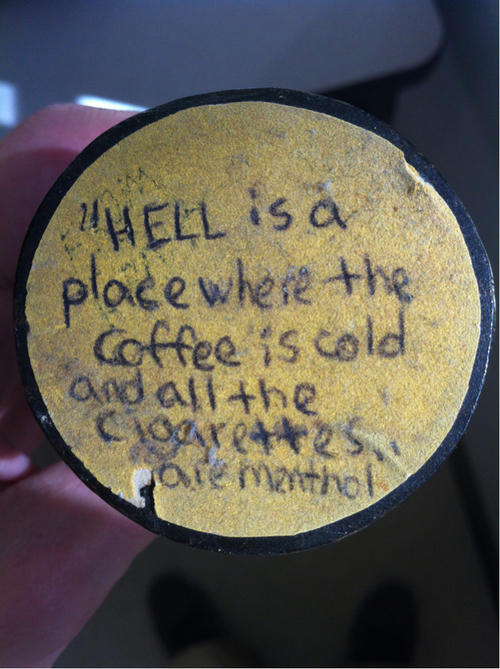 "HELL is a
place where the
coffee is cold
and all the
cigarettes,,
are menthol